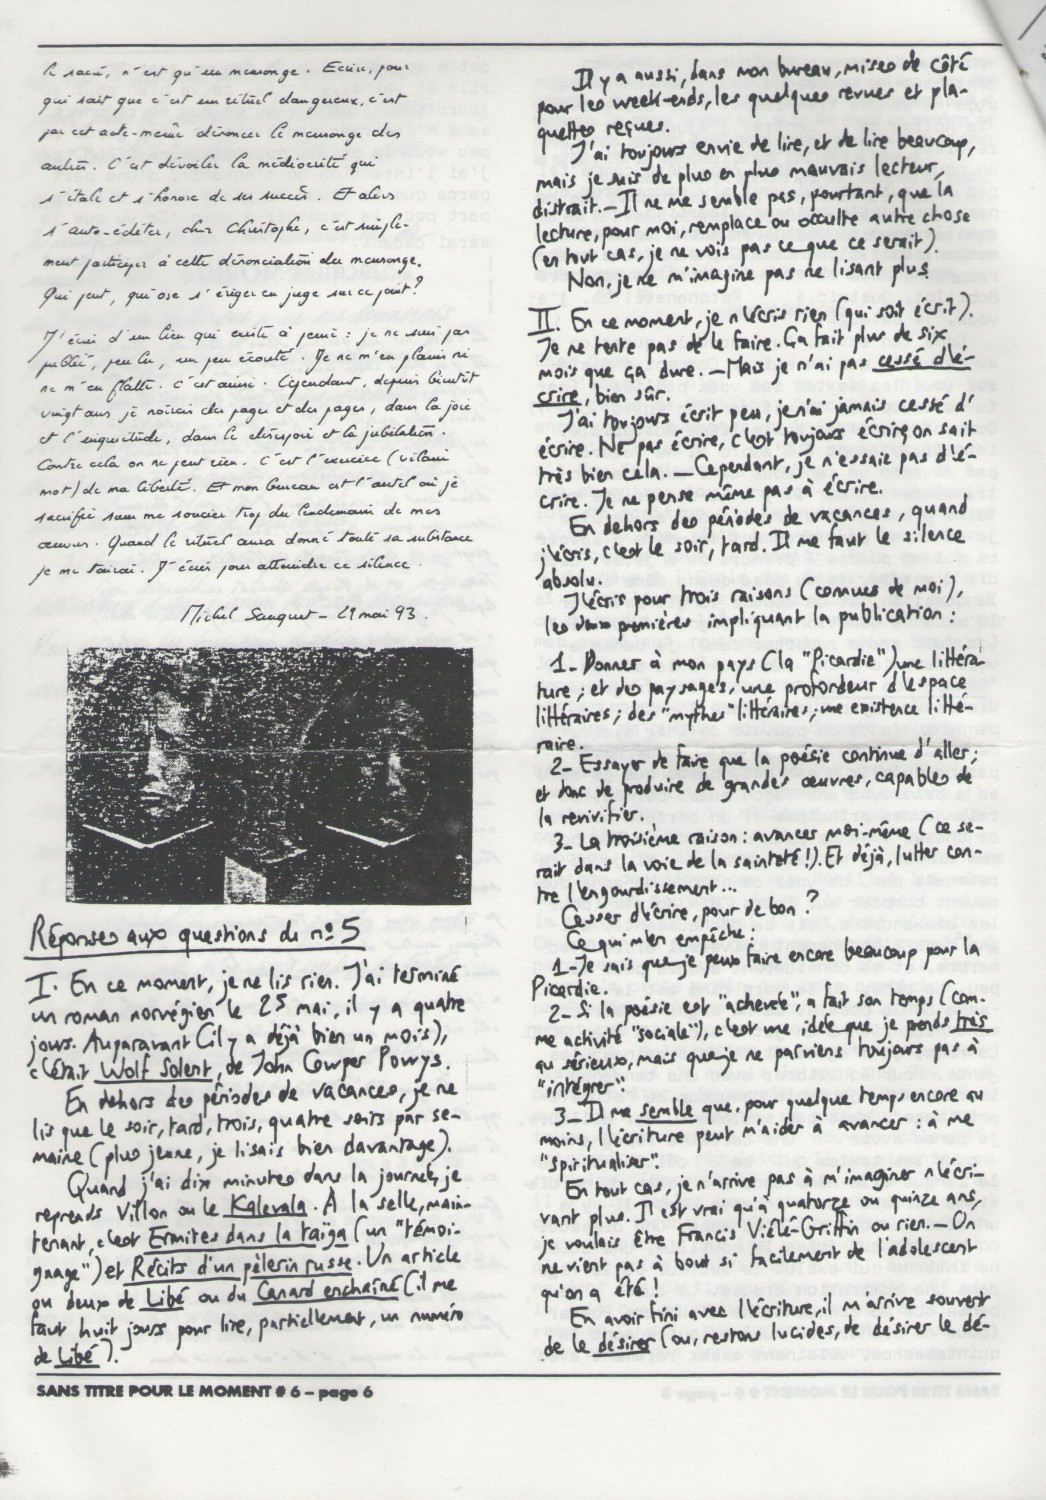 le sacré, n'est qu'un mensonge. Ecrire, pour
qui sait que c'est un rituel dangereux, c'est
par cet acte-même dénoncer le mensonge des
autres. C'est dévoiler la médiocrité qui
s'étale et s'honore de ses succès. Et alors
s'auto-éditer, cher Christophe, c'est simple-
ment participer à cette dénonciation du mensonge.
Qui peut, qui ose s'ériger en juge sur ce point?
J'écris d'un lieu qui existe à peine : je ne suis pas
publié, peu lu, un peu écouté. Je ne m'en plains ni
ne m'en flatte. C'est ainsi. Cependant, depuis bientôt
vingt ans je noircis des pages et des pages, dans la joie
et l'inquiétude, dans le désespoir et la jubilation.
Contre cela on ne peut rien. C'est l'exercice (vilain
mot) de ma liberté. Et mon bureau est l'autel où je
sacrifie sans me soucier trop du lendemain de mes
œuvres. Quand le rituel aura donné toute sa substance
je me tairai. J'écris pour atteindre ce silence.
Michel Sauquet - 29 mai 93.
Réponses aux questions du nº 5
I. En ce moment, je ne lis rien. J'ai terminé
un roman norvégien le 25 mai, il y a quatre
jours. Auparavant (il y a déjà bien un mois),
c'était Wolf Solent, de John Cowper Powys.
En dehors des périodes de vacances, je ne
lis que le soir, tard, trois, quatre soirs par se-
maine (plus jeune, je lisais bien davantage).
Quand j'ai dix minutes dans la journée, je
reprends Villon ou le Kalevala. À la selle, main-
tenant, c'est Ermites dans la taïga (un "témoi-
gnage") et Récits d'un pèlerin russe. Un article
ou deux de Libé ou du Canard enchaîné (il me
faut huit jours pour lire, partiellement, un numéro
de Libé).
Il y a aussi, dans mon bureau, mises de côté
pour les week-ends, les quelques revues et pla-
quettes reçues.
J'ai toujours envie de lire, et de lire beaucoup,
mais je suis de plus en plus mauvais lecteur,
distrait. — Il ne me semble pas, pourtant, que la
lecture, pour moi, remplace ou occulte autre chose
(en tout cas, je ne vois pas ce que ce serait).
Non, je ne m'imagine pas ne lisant plus.
II. En ce moment, je n'écris rien (qui soit écrit).
Je ne tente pas de le faire. Ça fait plus de six
mois que ça dure. — Mais je n'ai pas cessé d'é-
crire, bien sûr.
J'ai toujours écrit peu, je n'ai jamais cessé d'
écrire. Ne pas écrire, c'est toujours écrire, on sait
très bien cela. — Cependant, je n'essaie pas d'é-
crire. Je ne pense même pas à écrire.
En dehors des périodes de vacances, quand
j'écris, c'est le soir, tard. Il me faut le silence
absolu.
J'écris pour trois raisons (connues de moi),
les deux premières impliquant la publication :
1- Donner à mon pays (la "Picardie") une littéra-
ture ; et des paysages, une profondeur d'espace
littéraires ; des "mythes" littéraires ; une existence litté-
raire.
2- Essayer de faire que la poésie continue d'aller ;
et donc de produire de grandes œuvres, capables de
la revivifier.
3- La troisième raison : avancer moi-même (ce se-
rait dans la voie de la sainteté !). Et déjà, lutter con-
tre l'engourdissement...
Cesser d'écrire, pour de bon ?
Ce qui m'en empêche :
1- Je sais que je peux faire encore beaucoup pour la
Picardie.
2- Si la poésie est "achevée", a fait son temps (com-
me activité "sociale"), c'est une idée que je prends très
au sérieux, mais que je ne parviens toujours pas à
"intégrer".
3- Il me semble que, pour quelque temps encore au
moins, l'écriture peut m'aider à avancer : à me
"spiritualiser".
En tout cas, je n'arrive pas à m'imaginer n'écri-
vant plus. Il est vrai qu'à quatorze ou quinze ans,
je voulais être Francis Viélé-Griffin ou rien. — On
ne vient pas à bout si facilement de l'adolescent
qu'on a été !
En avoir fini avec l'écriture, il m'arrive souvent
de le désirer (ou, restons lucides, de désirer le dé-
SANS TITRE POUR LE MOMENT # 6 – page 6